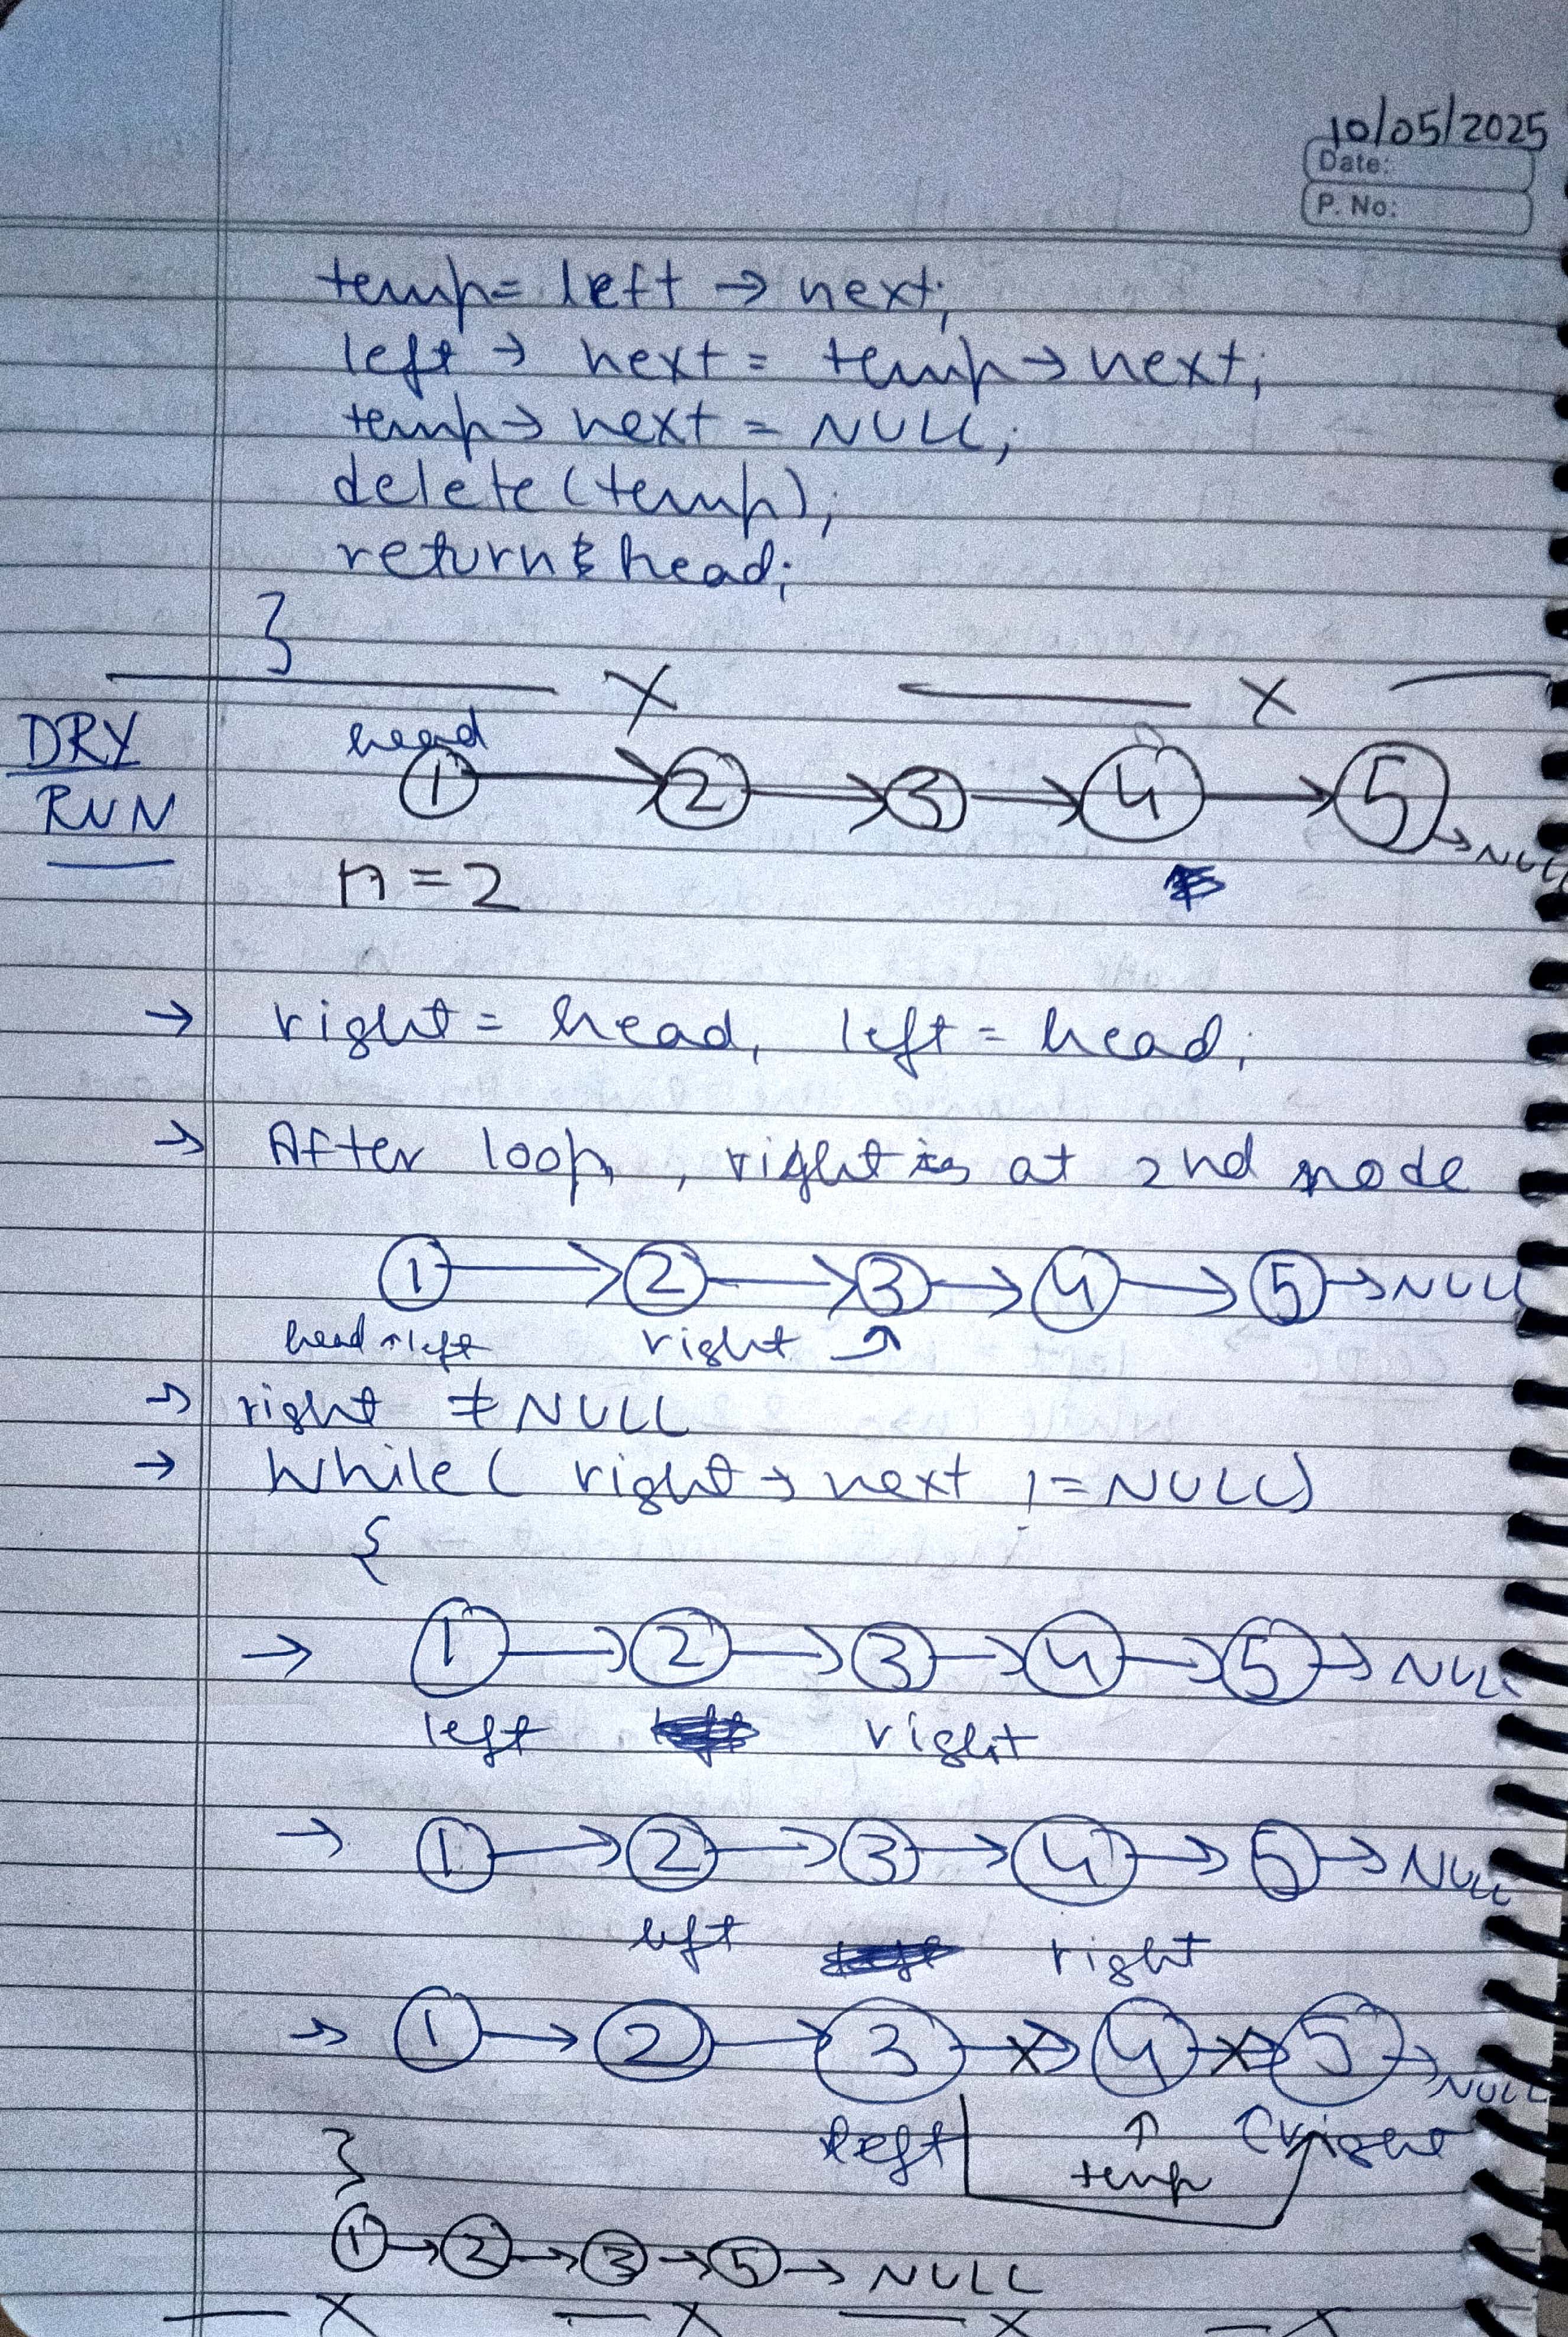 10/05/2025
Date:
P. No:
temp = left → next;
left → next = temp → next;
temp → next = NULL;
delete (temp);
return head;
}
X X
DRY RUN
head
1 → 2 → 3 → 4 → 5 → NULL
n = 2
→ right = head, left = head;
→ After loop, right is at 2nd node
1 → 2 → 3 → 4 → 5 → NULL
head left right ↑
→ right ≠ NULL
→ While ( right → next != NULL)
{
→ 1 → 2 → 3 → 4 → 5 → NULL
left right
→ 1 → 2 → 3 → 4 → 5 → NULL
left right
→ 1 → 2 → 3 → 4 → 5 → NULL
left ↑ temp ↑ right
}
1 → 2 → 3 → 5 → NULL
X X X X